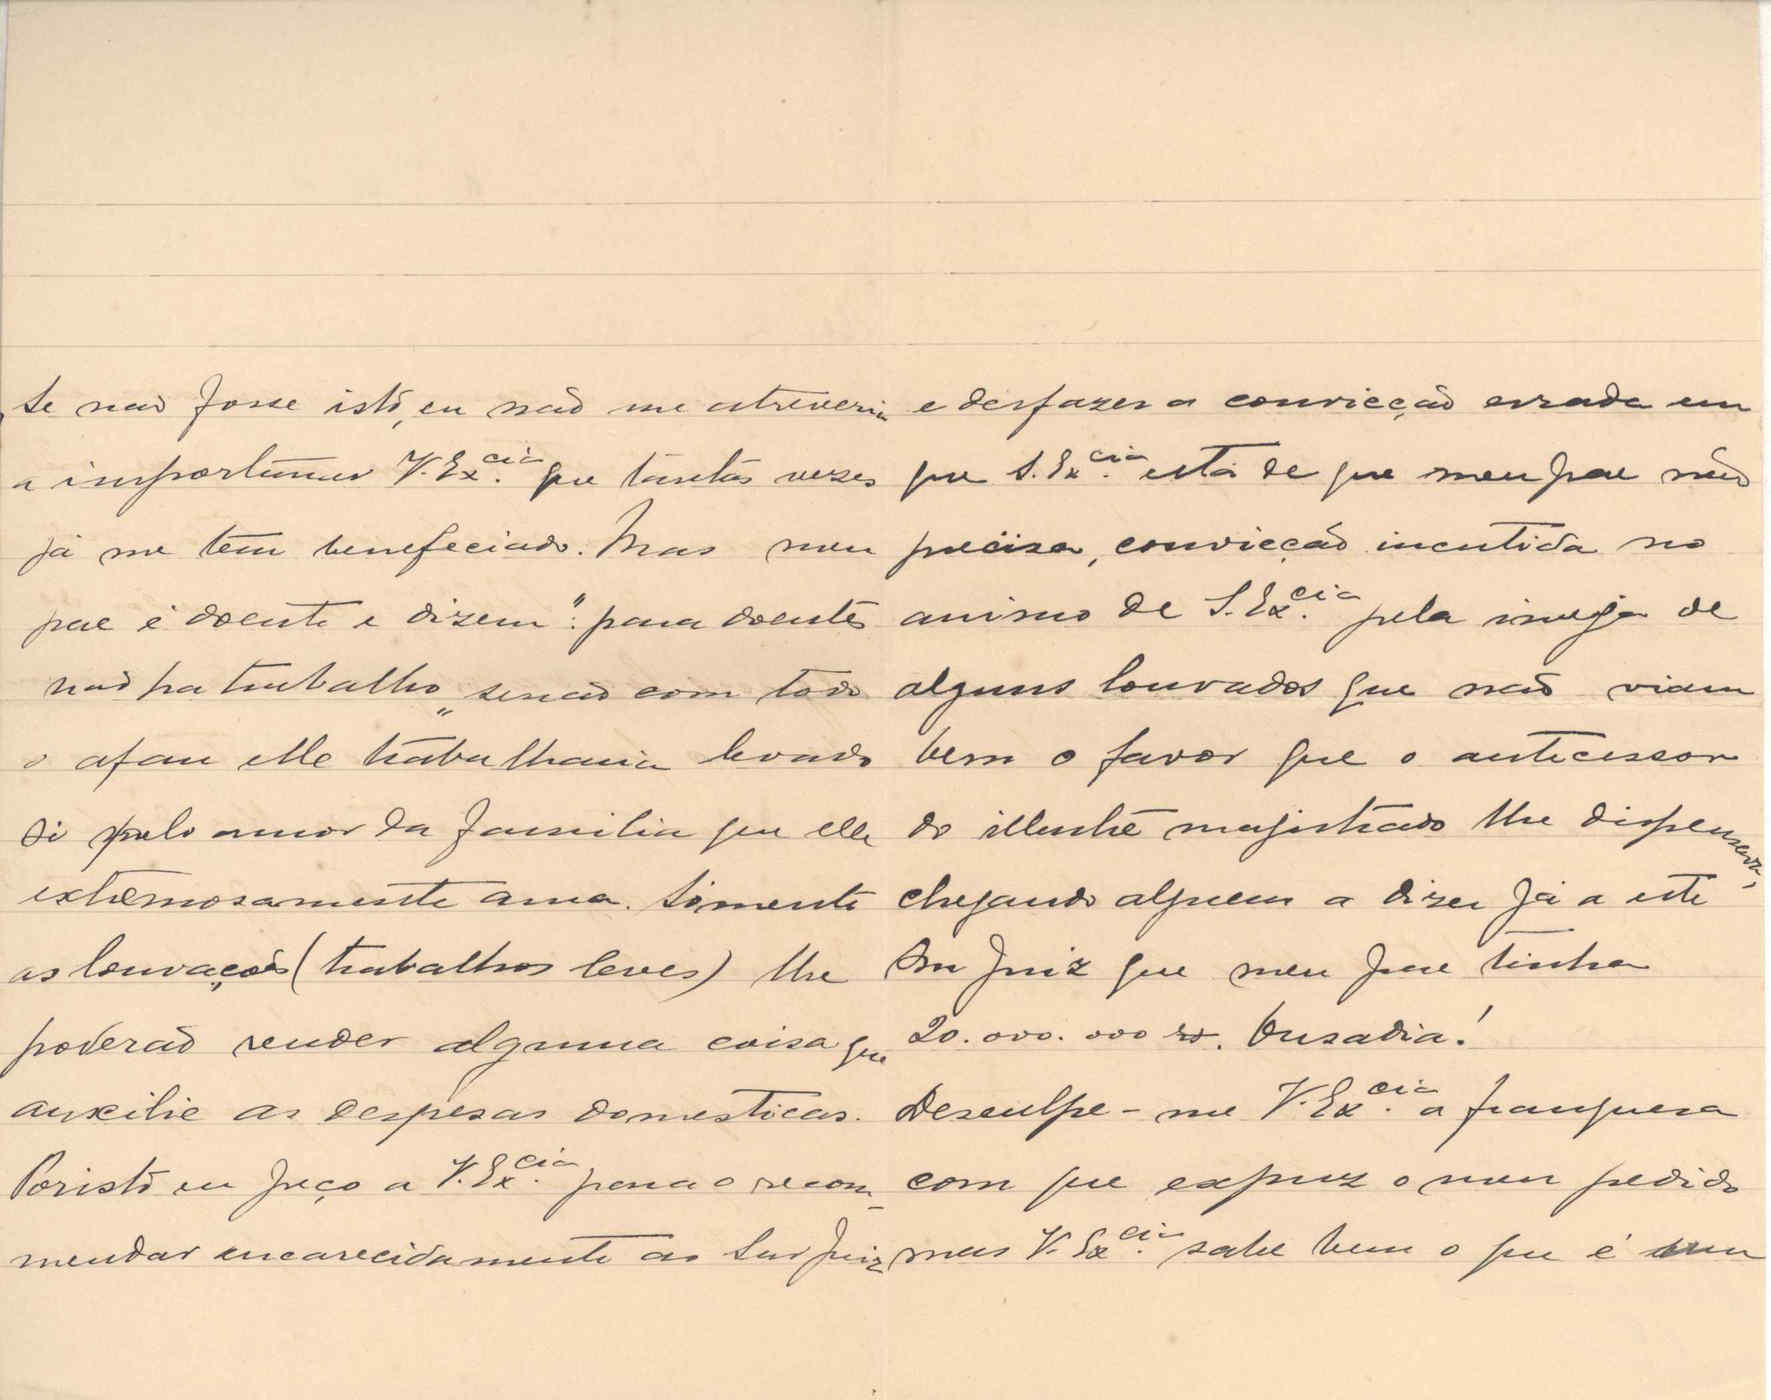 Se não fosse istó, eu não me atreveria
a importunar V. Ex.cia que tantas vezes
já me tem benefeciado. Mas meu
pae é doente e dizem ": para doentes
não ha trabalho „ senão com todo
o afan elle trabalharia levado
si pelo amor da familia que elle
extremosamente ama. Sómente
as louvações (trabalhos leves) lhe
poderão render alguma coisa que
auxilie as despesas domesticas.
Poristó eu peço a V. Ex.cia para o recom-
mendar encarecidamente ao Snr Juiz
e desfazer a convicção errada em
que S. Ex.cia está de que meu pae não
precisa, convicção incutida no
animo de S. Ex.cia pela inveja de
alguns louvados que não viam
bem o favor que o antecessor
do illustre magistrado lhe dispensava,
chegando alguem a dizer já a este
Snr Juiz que meu pae tinha
20.000.000 rs. Ousadia!
Desculpe-me V. Ex.cia a franquesa
com que expuz o meu pedido
mas V. Ex.cia sabe bem o que é um